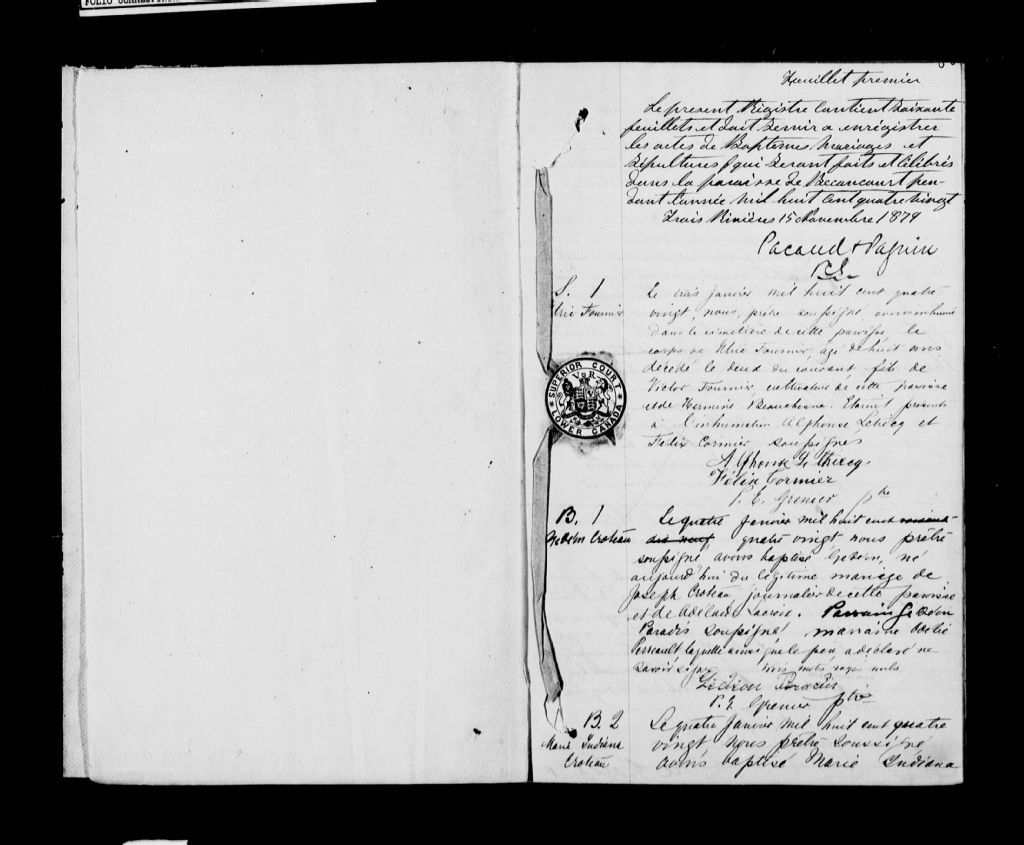 Feuillet premier
Le present Régistre Contient Soixante
feuillets et doit Servir a enrégistrer
les actes de Baptemes Mariages et
Sépultures qui Seront faits et Célébrés
dans la paroisse de Becancourt pen-
dant l'année Mil huit Cent quatre vingt
Trois Rivières 15 Novembre 1879
Pacaud &
S. 1
Ulric Fournier
Le trois Janvier mil huit cent quatre
vingt, nous, prêtre soussigné, avons inhumé
dans le cimetière de cette paroisse le
corps de Ulric Fournier, agé de huit ans
décédé le deux du courant fils de
Victor Fournier cultivateur de cette paroisse
et de Hermine Beauchesne. Etaient présents
à l'inhumation Alphonse et
Felix Cormier soussignés
Alphonse
Félix Cormier
P. E. Grenier ptre
SUPERIOR COURT
V R
LOWER CANADA
B. 1
Gedéon Croteau
Le quatre Janvier mil huit cent soixante-
dix neuf quatre vingt nous prêtre
soussigné, avons baptisé Gedéon, né
aujourd'hui du légitime mariage de
Joseph Croteau, journalier de cette paroisse
et de Adelaide Lacroix. Parrain Gedéon
Paradis soussigné marraine Odelie
Perreault laquelle ainsi que le père a déclaré ne
savoir signer trois mots rayés nuls
Gédéon Paradis
P. E. Grenier ptre
B. 2
Marie Indiana
Croteau
Le quatre Janvier mil huit cent quatre
vingt nous prêtre soussigné
avons baptisé Marie Indiana